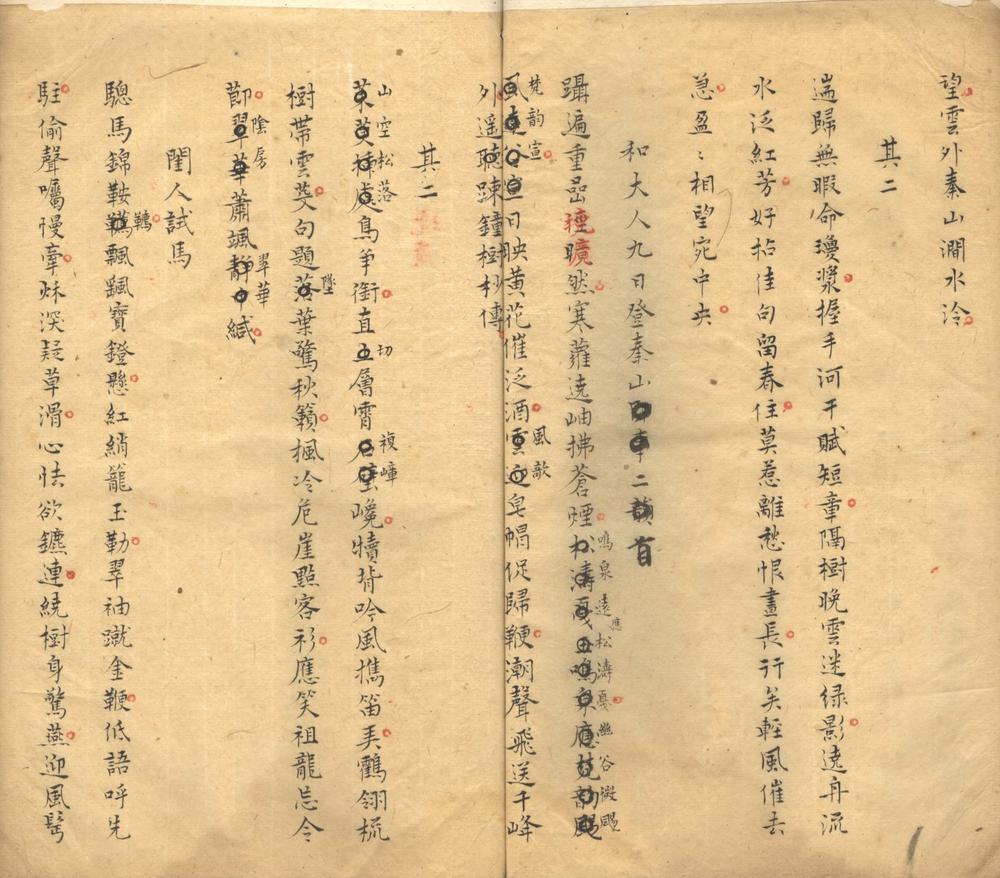 望雲外秦山澗水泠
其二
遄歸無暇命瓊漿握手河干賦短章隔樹晚雲迷绿影遠舟流
水泛紅芳好拈佳句留春住莫惹離愁恨晝長行矣輕風催去
急盈〻相望宛中央
和大人九日登秦山
二首
躡遍重嵒曠然寒蘿遶岫拂蒼煙
鳴泉遠應松濤戞幽谷微颺
梵韵宣
日映黄花催泛酒
風歌
皂帽促歸鞭潮聲飛送千峰
外遥聴踈鐘樹杪傳
其二
山空松落
鳥爭銜直
切
層霄
複嶂
巉犢背吟風携笛弄鸛翎梳
樹帶雲芟句題
墜
葉驚秋籟楓冷危崖點客衫應笑祖龍忘令
節
陰房
蕭颯
翠華
緘
閨人試馬
驄馬錦鞍
韉
飄颻寶鐙懸紅綃籠玉勒翠袖蹴金鞭低語呼先
駐偷聲囑慢牽秌深疑草滑心怯欲鑣連繞樹身驚燕迎風髩